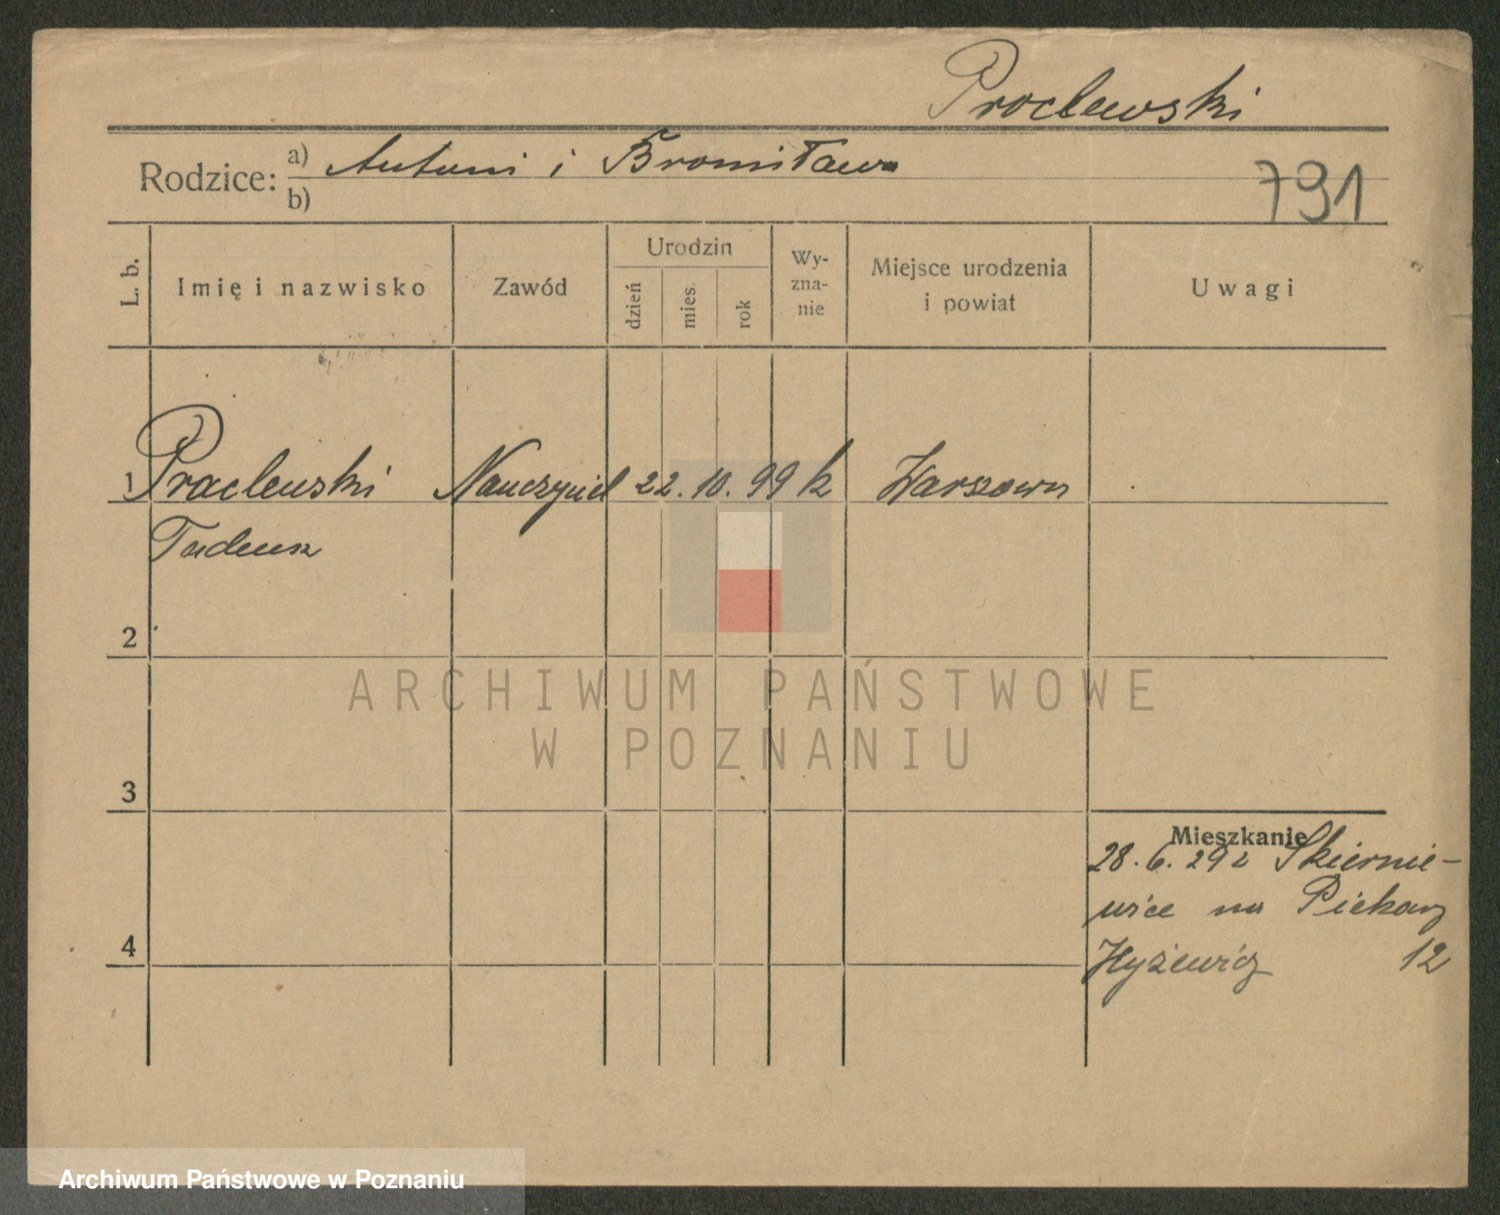 Proclewski
Rodzice: a) Antoni i Bronisława
b)
791
L. b.
Imię i nazwisko
Zawód
Urodzin
dzień
mies.
rok
Wy-
zna-
nie
Miejsce urodzenia
i powiat
Uwagi
1 Proclewski Nauczyciel 22. 10. 99 k Warszawa
Tadeusz
2
ARCHIWUM PAŃSTWOWE
W POZNANIU
3
Mieszkanie
28. 6. 29 z Skiernie-
wice na Piekary
Hyżewicz 12
4
Archiwum Państwowe w Poznaniu